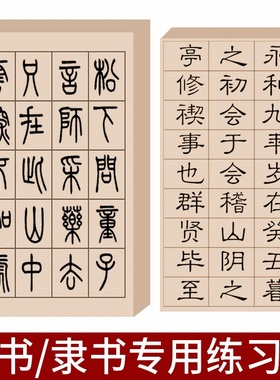 松下問童子
言師采藥去
只在此山中
永和九年岁在癸丑暮
之初会于会稽山阴之
亭修禊事也群贤毕至
书/隶书专用练习